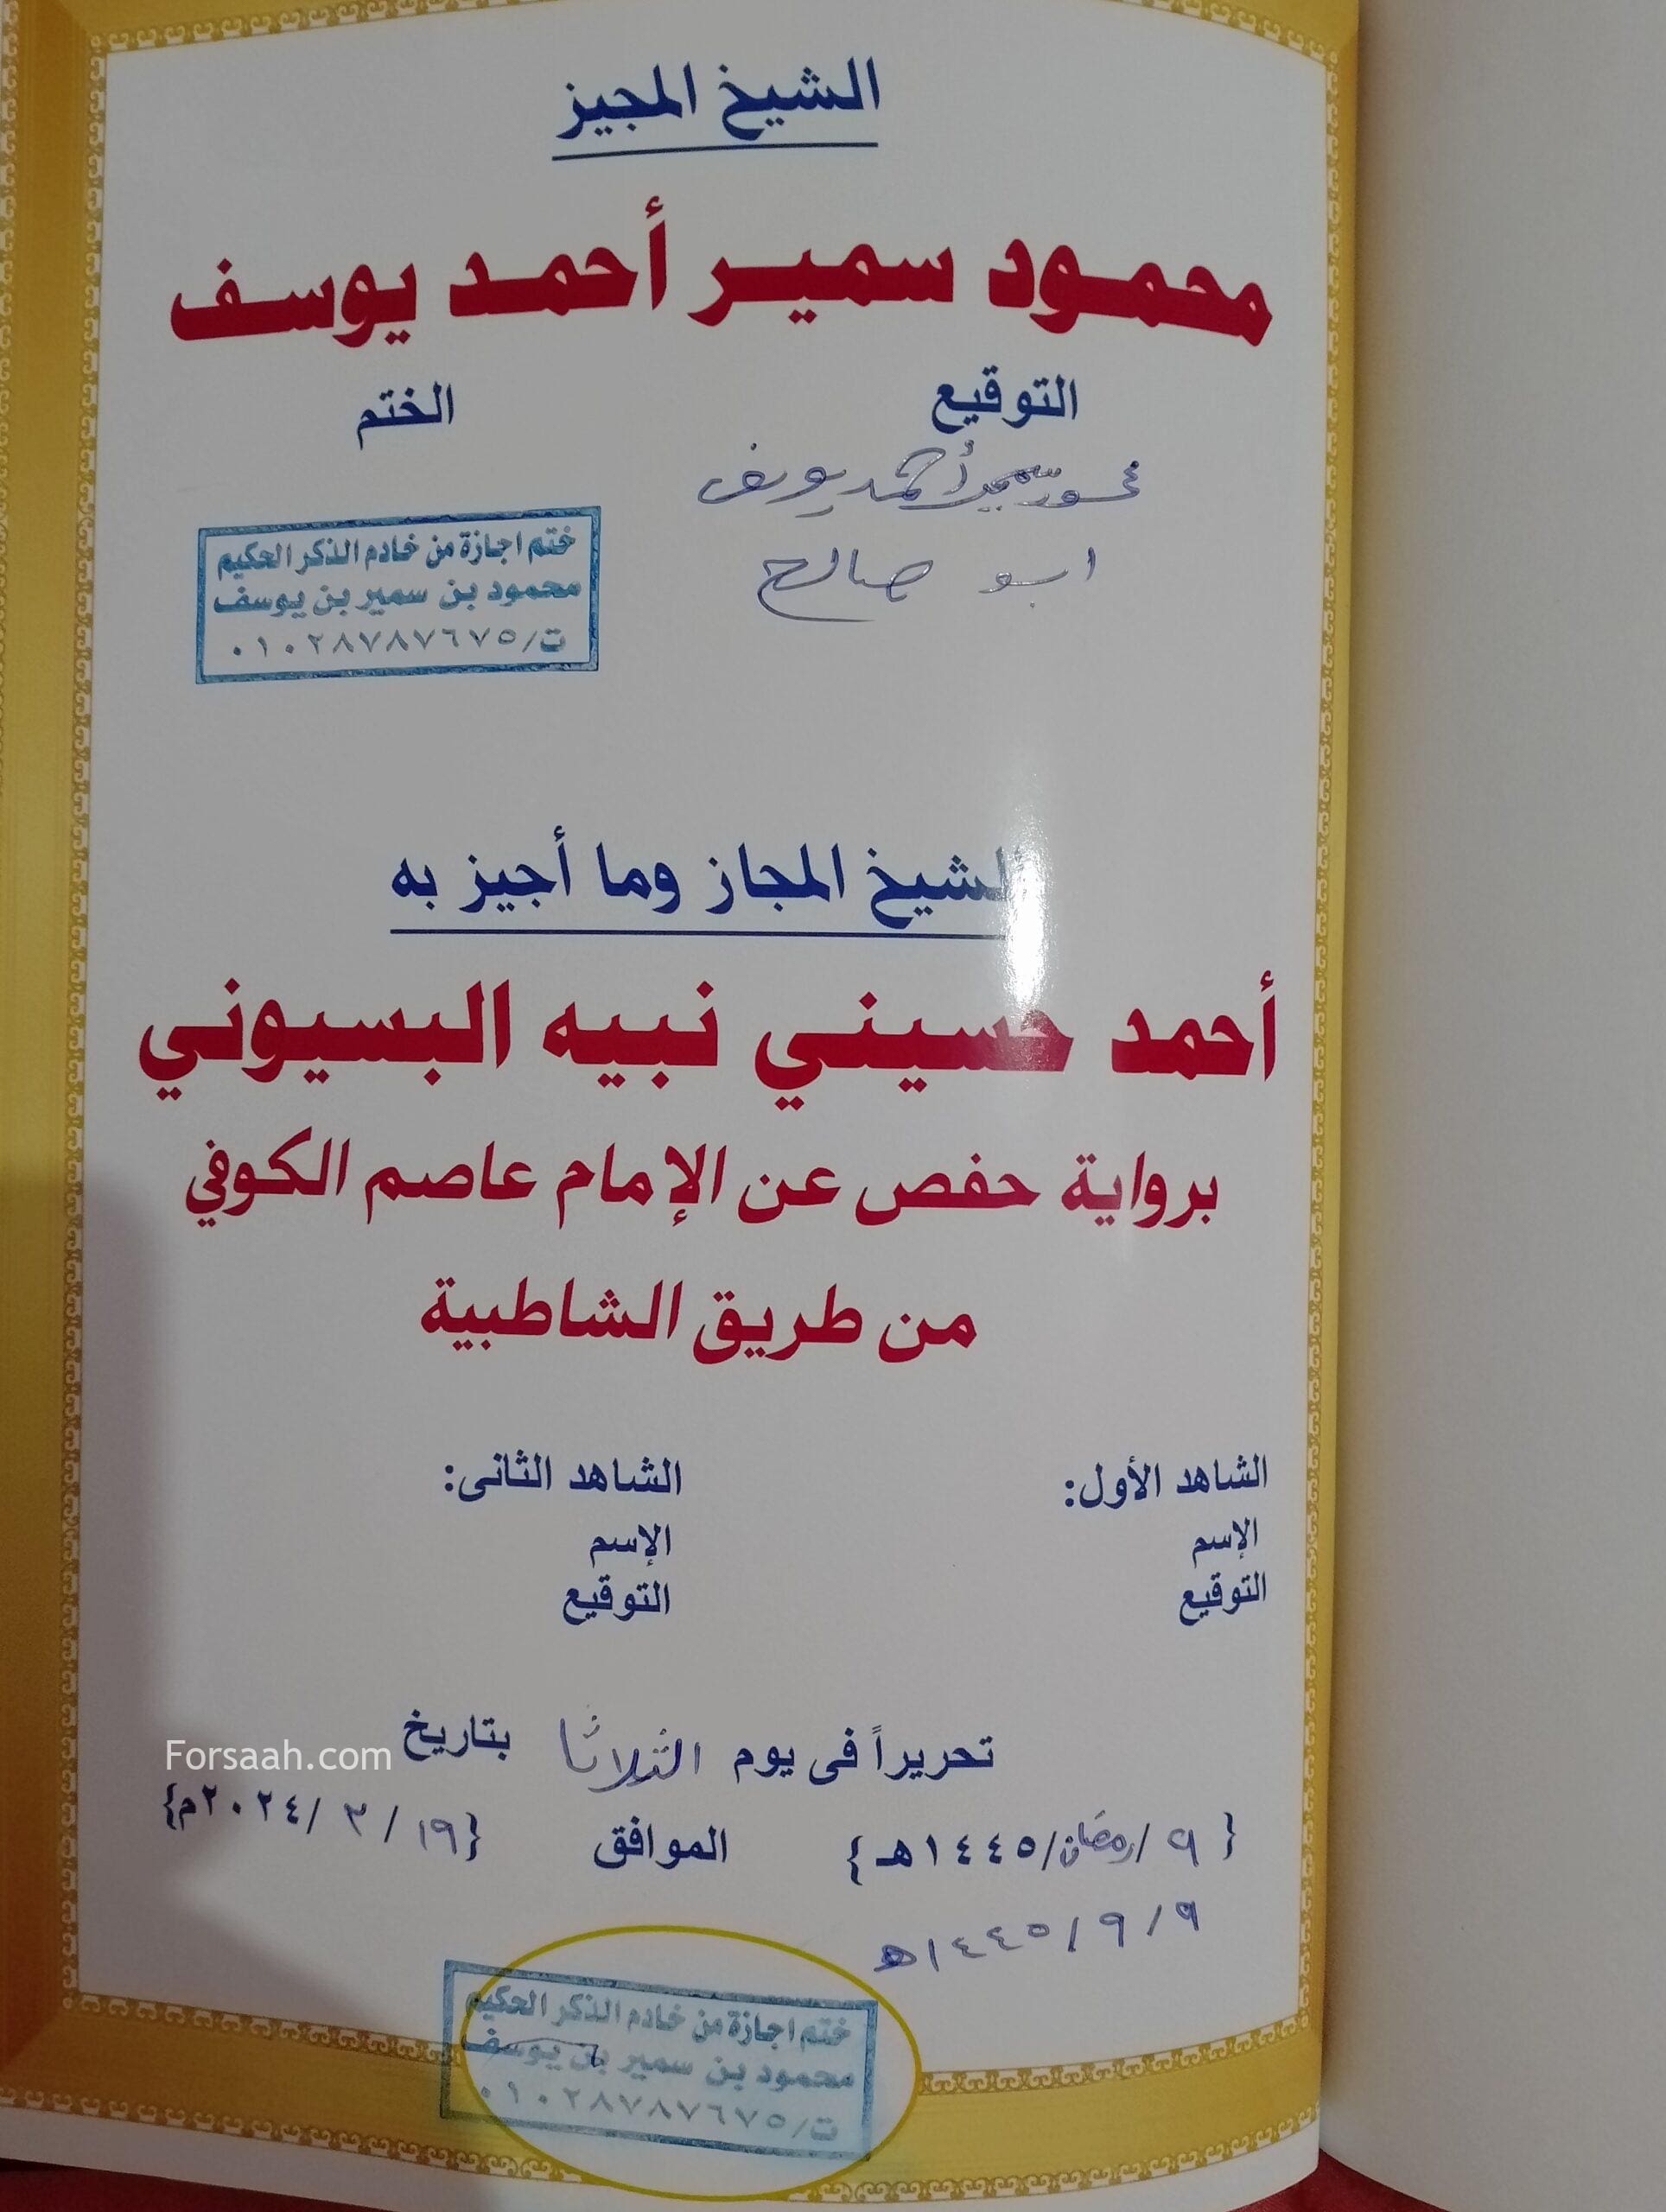 الشيخ المجيز
محمود سمير أحمد يوسف
التوقيع الختم
محمود سمير أحمد يوسف
ابو صالح
ختم اجازة من خادم الذكر الحكيم
محمود بن سمير بن يوسف
ت/٠١٠٢٨٧٨٧٦٧٥
الشيخ المجاز وما أجيز به
أحمد حسيني نبيه البسيوني
برواية حفص عن الإمام عاصم الكوفي
من طريق الشاطبية
الشاهد الأول: الشاهد الثانى:
الإسم الإسم
التوقيع التوقيع
تحريراً فى يوم الثلاثا بتاريخ
Forsaah.com
{ ٩ /رمضان/١٤٤٥هـ} الموافق {١٩ / ٣ /٢٠٢٤م}
٩ / ٩ / ١٤٤٥هـ
ختم اجازة من خادم الذكر الحكيم
محمود بن سمير بن يوسف
ت/٠١٠٢٨٧٨٧٦٧٥